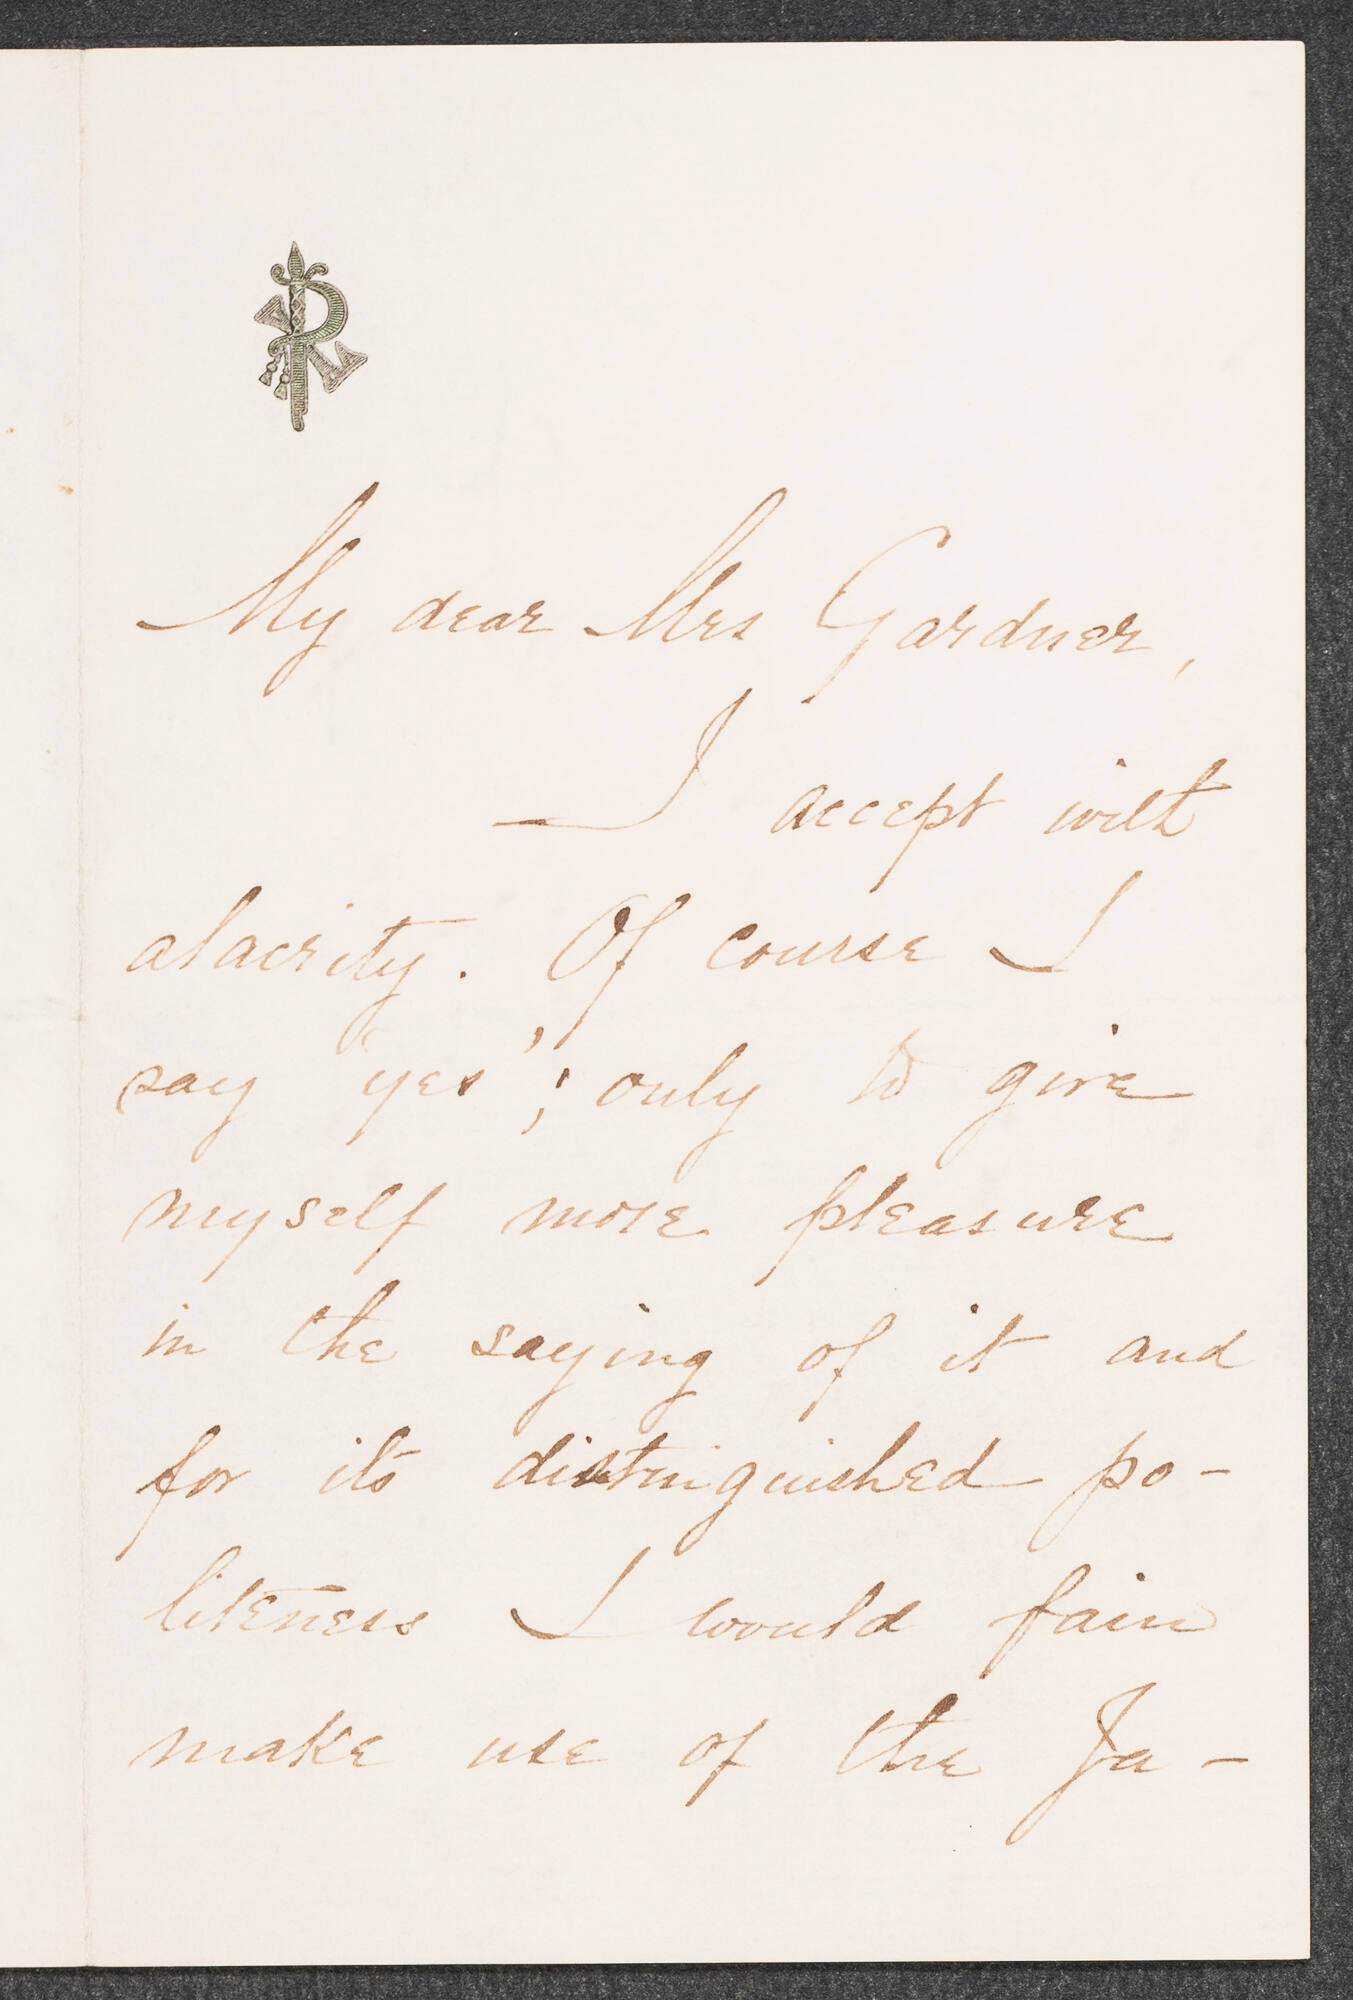 R
My dear Mrs Gardner,
I accept with
alacrity. Of course I
say 'yes'; only to give
myself more pleasure
in the saying of it and
for its distinguished po-
liteness I would fain
make use of the Ja-